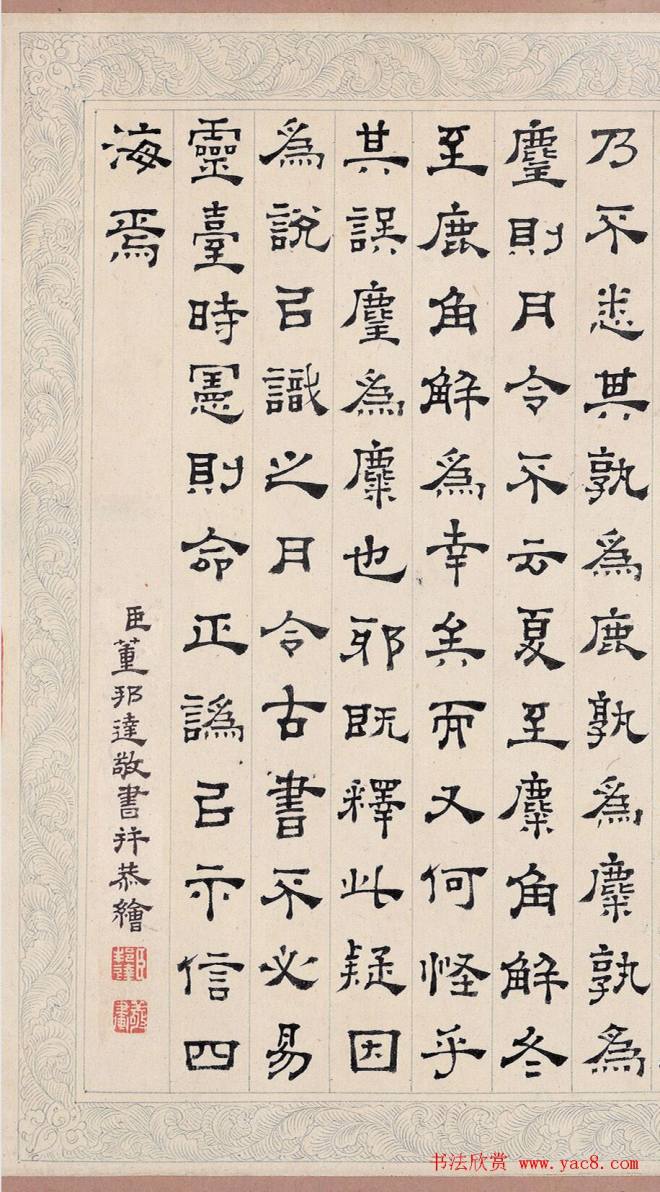 乃不悉其孰為鹿孰為麋孰為
麈則月令不云夏至麋角解冬
至鹿角解為幸矣而又何怪乎
其誤麈為麋也耶既釋此疑因
為說㠯識之月令古書不必易
靈臺時憲則命正譌㠯示信四
海焉
臣董邦達敬書并恭繪
臣邦達
书法欣赏 www.yac8.com